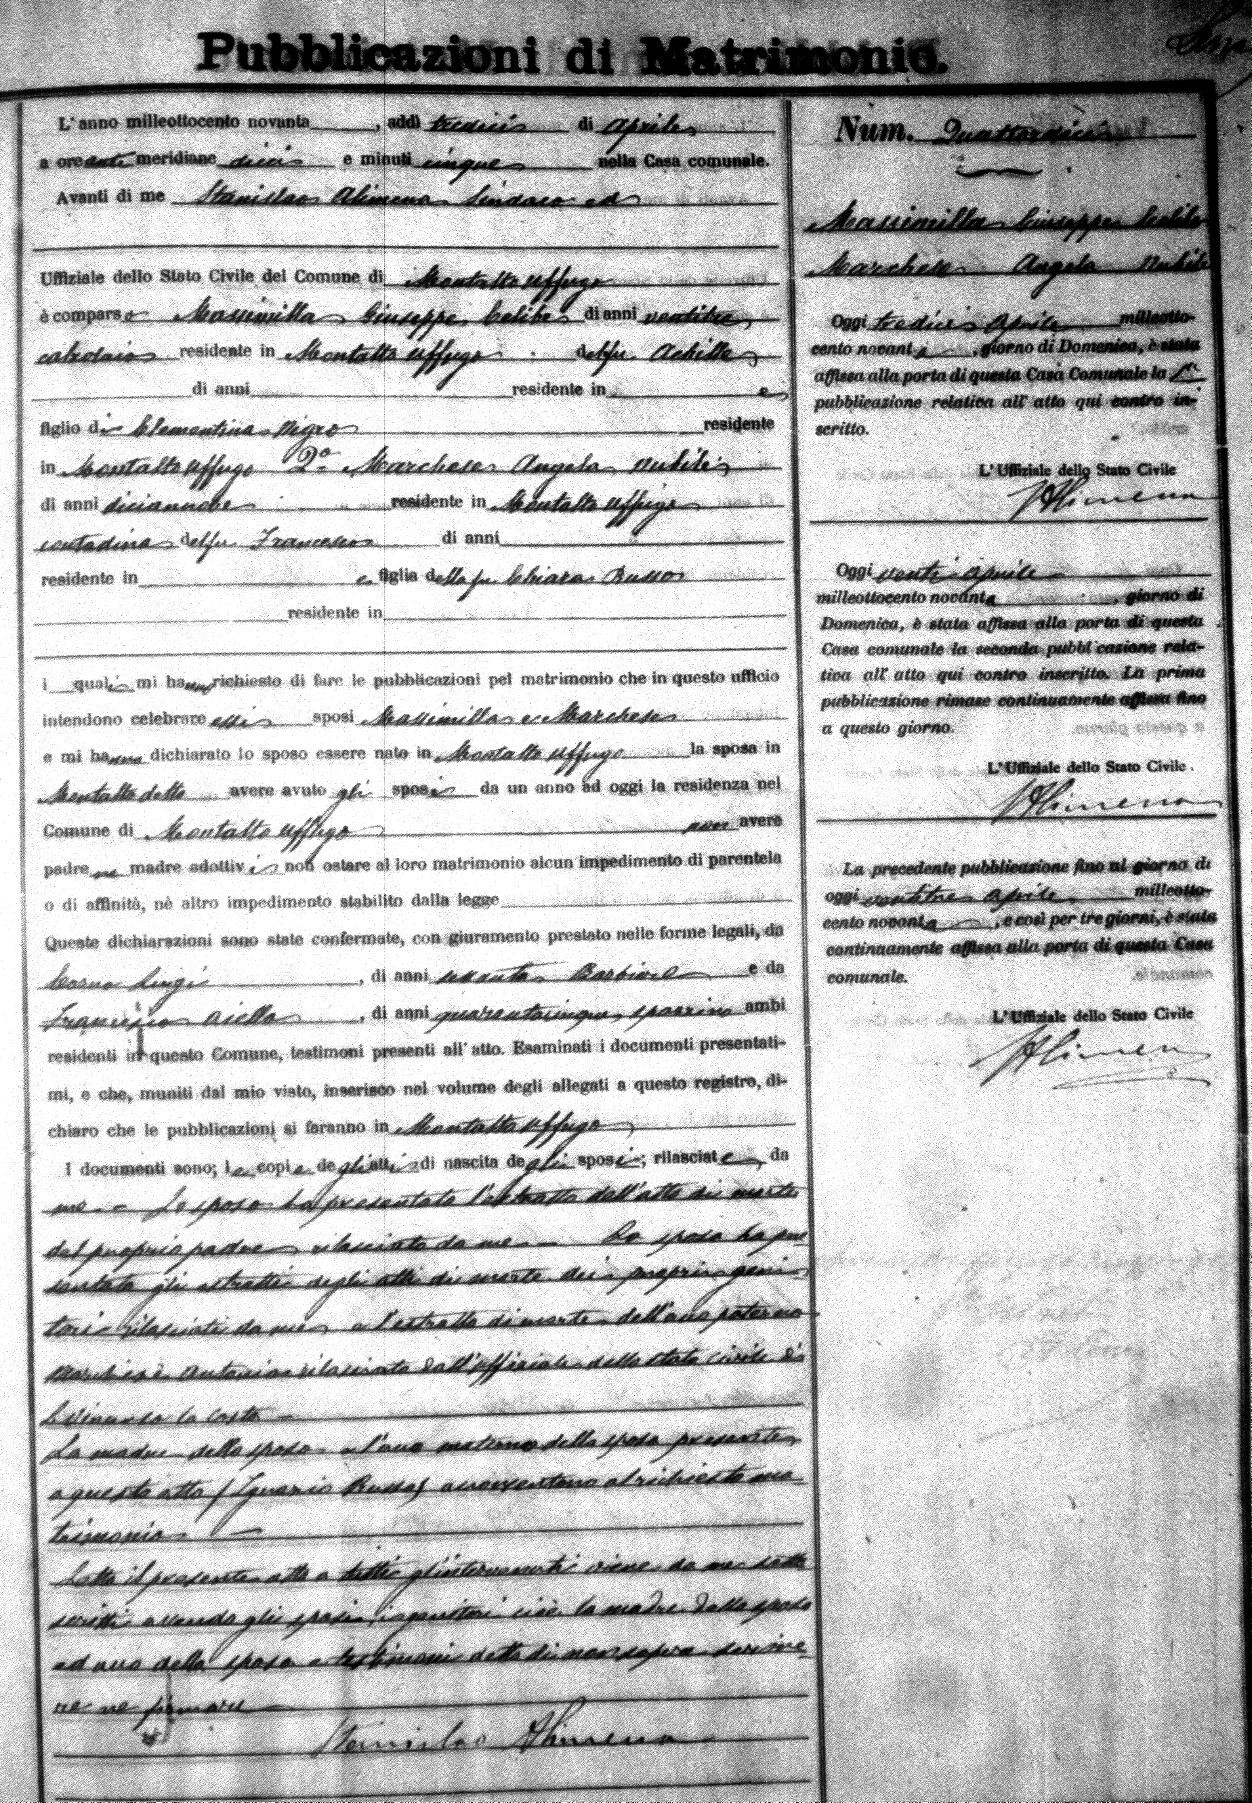 Pubblicazioni di Matrimonio.
L'anno milleottocento novanta , addì tredici di Aprile
a ore anti meridiane dieci e minuti cinque nella Casa comunale.
Avanti di me Stanislao Alimena Sindaco ed
Uffiziale dello Stato Civile del Comune di Montalto Uffugo
è comparso Massimilla Giuseppe, Celibe, di anni ventitre
calzolaio residente in Montalto Uffugo del fu Achille
di anni residente in e
figlio di Clementina Nigro residente
in Montalto Uffugo 2º Marchese Angela nubile
di anni diciannove residente in Montalto Uffugo
contadina del fu Francesco di anni
residente in e figlia della fu Chiara Russo
residente in
i quali mi hanno richiesto di fare le pubblicazioni pel matrimonio che in questo ufficio
intendono celebrare essi sposi Massimilla e Marchese
e mi hanno dichiarato lo sposo essere nato in Montalto Uffugo la sposa in
Montalto detto avere avuto gli sposi da un anno ad oggi la residenza nel
Comune di Montalto Uffugo non avere
padre ne madre adottivi non ostare al loro matrimonio alcun impedimento di parentela
o di affinità, nè altro impedimento stabilito dalla legge
Queste dichiarazioni sono state confermate, con giuramento prestato nelle forme legali, da
Luigi , di anni e da
Francesco Aiello , di anni quarantacinque, spazzino ambi
residenti in questo Comune, testimoni presenti all'atto. Esaminati i documenti presentati-
mi, e che, muniti dal mio visto, inserisco nel volume degli allegati a questo registro, di-
chiaro che le pubblicazioni si faranno in Montalto Uffugo
I documenti sono; le copie degli atti di nascita degli sposi; rilasciate da
me - Lo sposo ha presentato l'estratto dell'atto di morte
del proprio padre rilasciato da me - La sposa ha pre
sentato gli estratti degli atti di morte dei propri geni-
tori rilasciati da me, e l'estratto di morte dell'avo paterno
Marchese Antonio rilasciato dall'uffiziale dello stato civile di
La madre dello sposo e l'avo materno della sposa presenti
a questo atto (Ignazio Russo) acconsentono al richiesto ma-
trimonio
Letto il presente atto a tutti gl'intervenuti viene da me sotto
scritto avendo gli sposi, i genitori cioè la madre dello sposo
ed avo della sposa e testimoni detto di non sapere scrive-
re ne firmare
Stanislao Alimena
Num. Quattordici
Massimilla Giuseppe Celibe
Marchese Angela nubile
Oggi tredici Aprile milleotto-
cento novanta , giorno di Domenica, è stata
affissa alla porta di questa Casa Comunale la 1ª
pubblicazione relativa all'atto qui contro in-
scritto.
L'Uffiziale dello Stato Civile
SAlimena
Oggi venti aprile
milleottocento novanta , giorno di
Domenica, è stata affissa alla porta di questa
Casa comunale la seconda pubblicazione rela-
tiva all'atto qui contro inscritto. La prima
pubblicazione rimase continuamente affissa fino
a questo giorno.
L'Uffiziale dello Stato Civile
SAlimena
La precedente pubblicazione fino al giorno di
oggi ventitre aprile milleotto-
cento novanta , e così per tre giorni, è stata
continuamente affissa alla porta di questa Casa
comunale.
L'Uffiziale dello Stato Civile
SAlimena